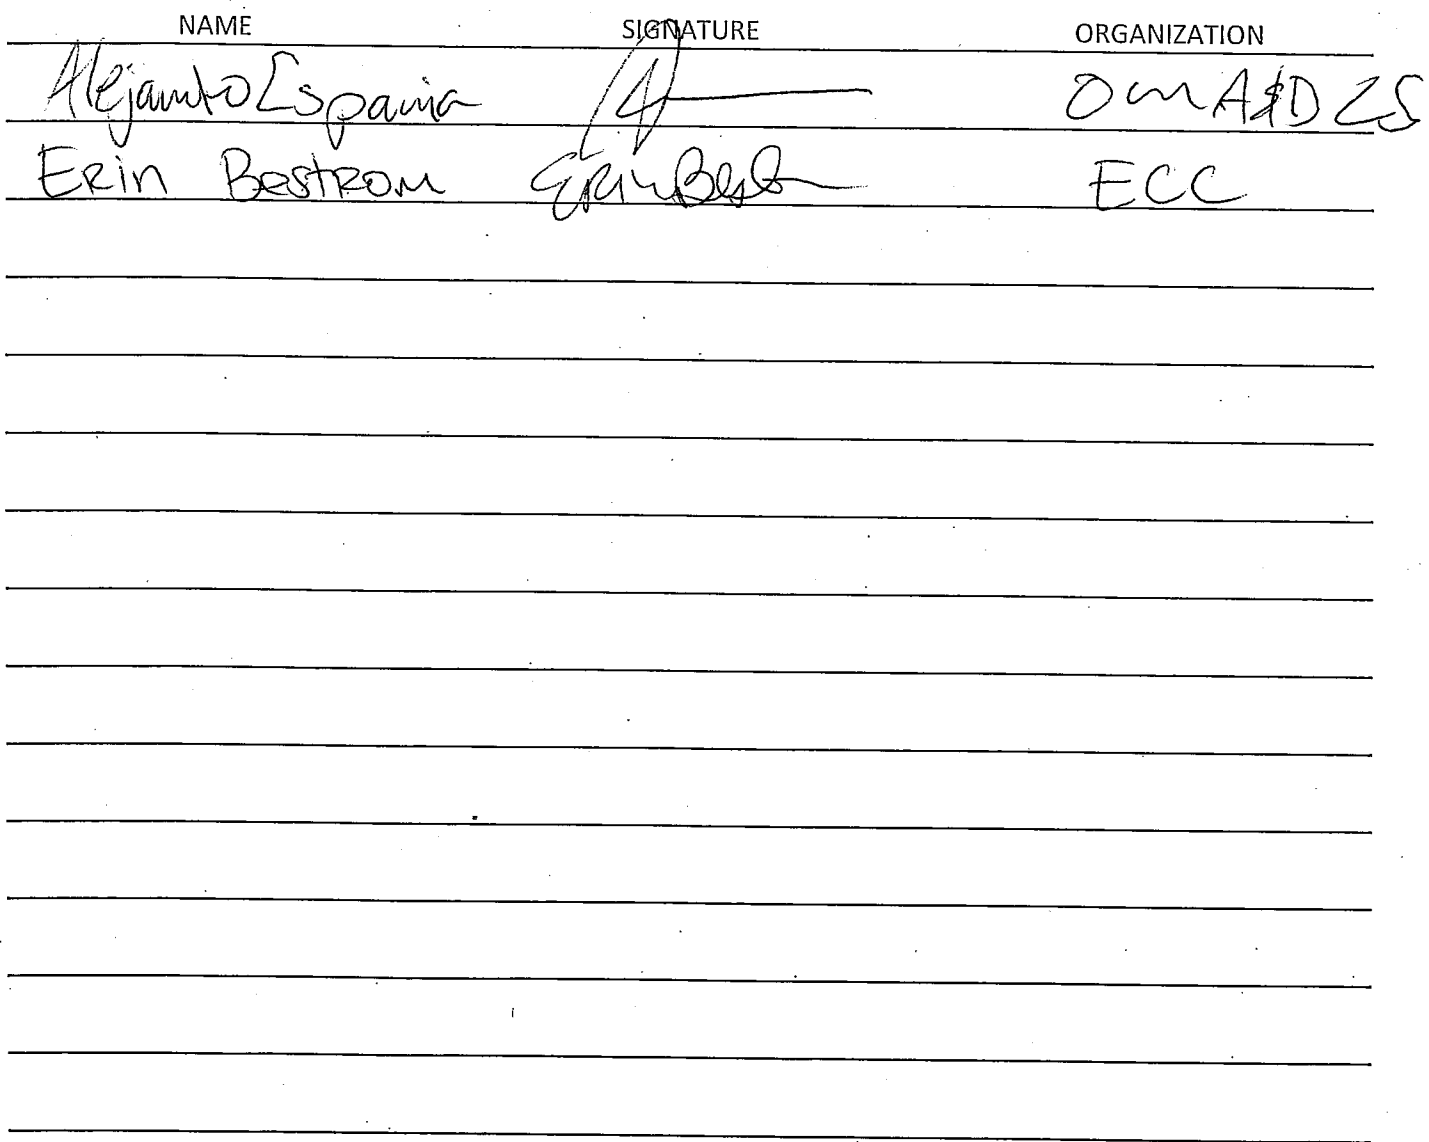 NAME SIGNATURE ORGANIZATION
Alejandro España
Erin Bestrom Erin Best ECC